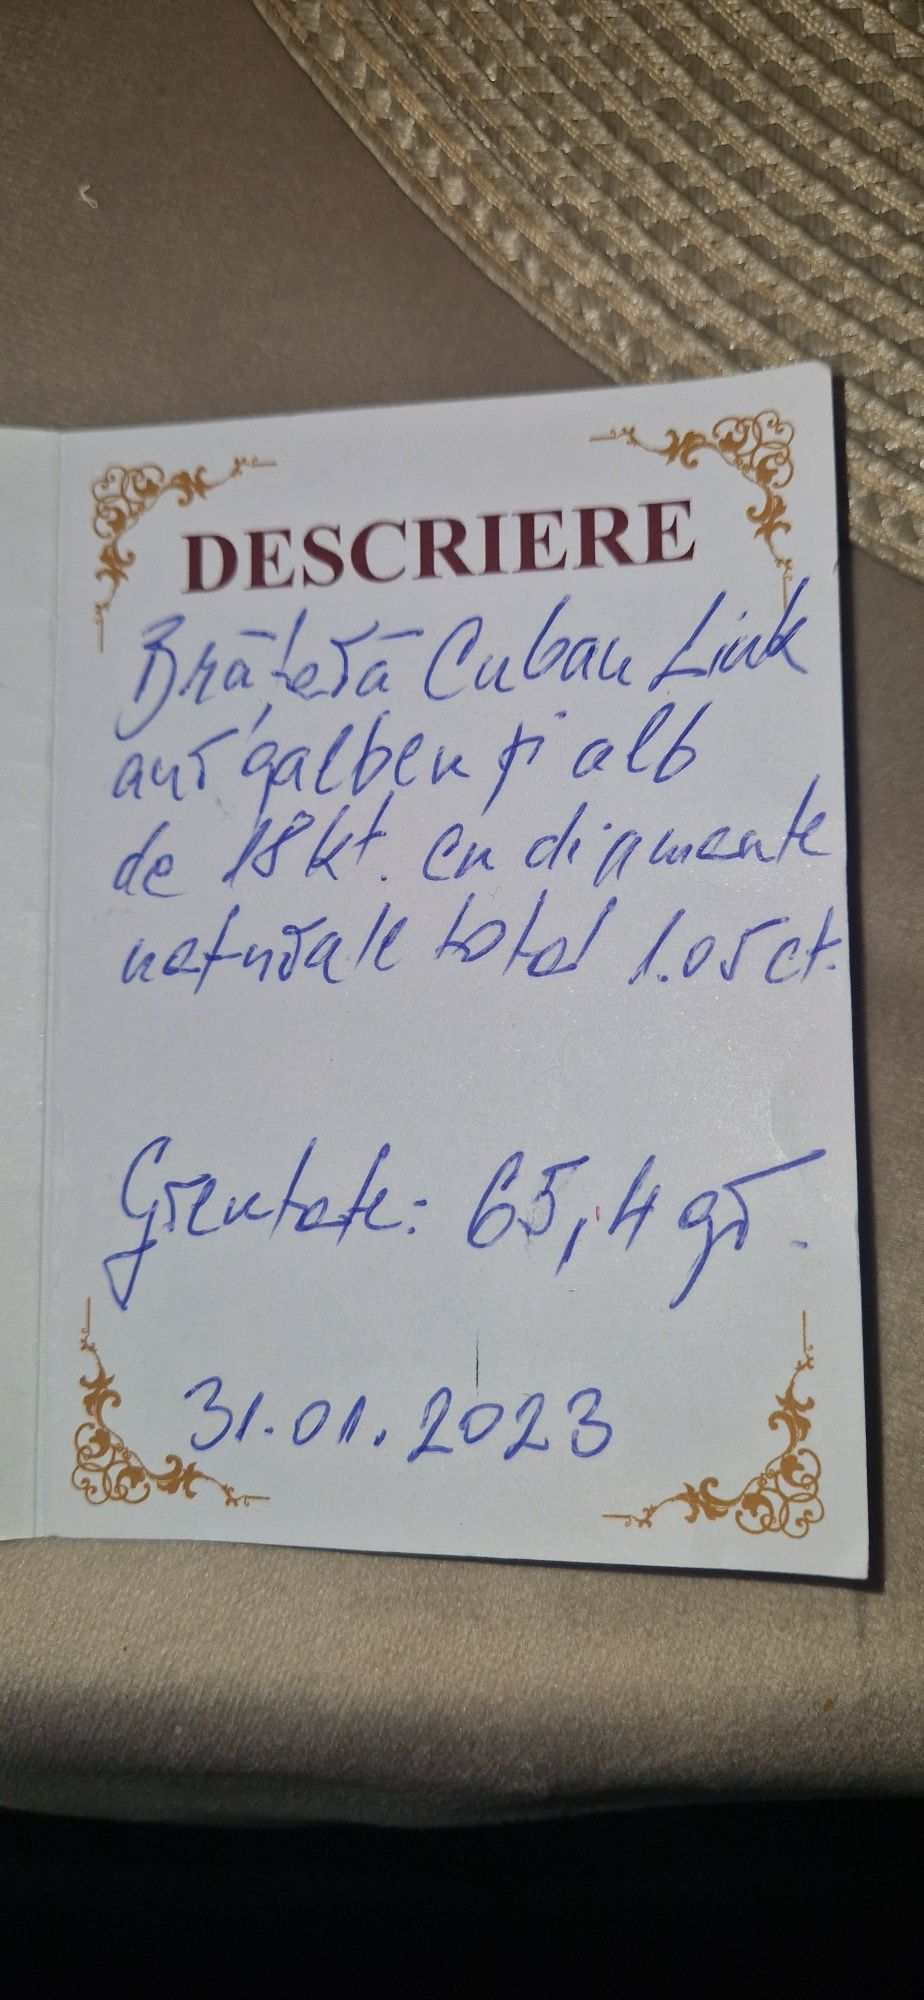 DESCRIERE
Brățară Cuban Link
aur galben și alb
de 18kt. cu diamante
naturale total 1.05ct.
Greutate: 65,4 gr.
31.01.2023